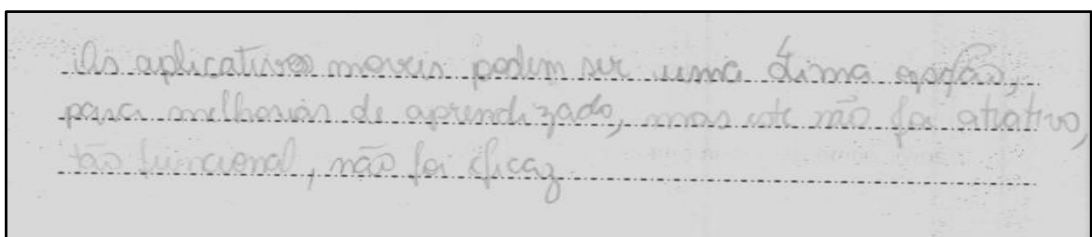 Os aplicativos moveis podem ser uma ótima opção,
para melhorias de aprendizado, mas este não foi atrativo,
tão funcional, não foi eficaz